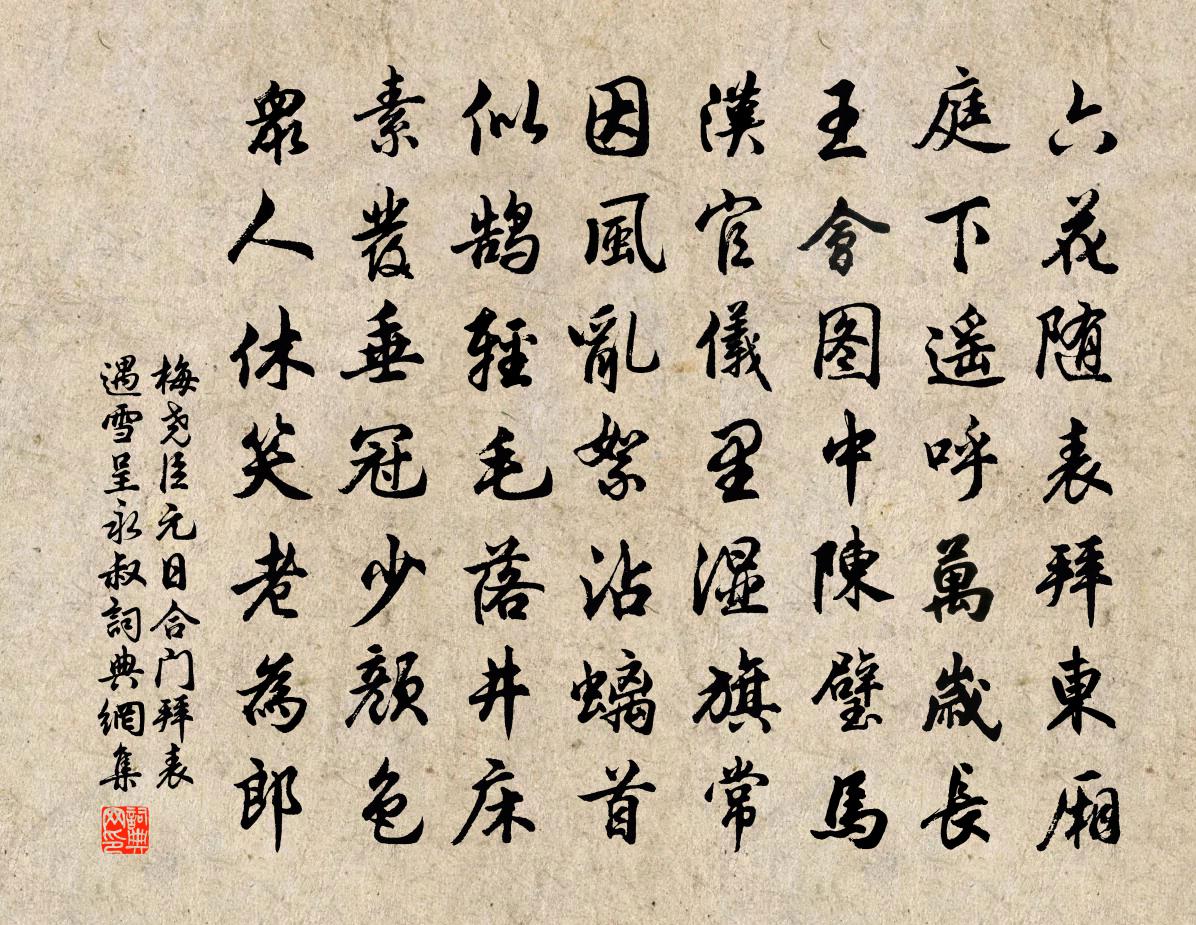 六花随表拜東厢
庭下遥呼萬歲長
王會图中陳璧馬
漢官儀里濕旗常
因風亂絮沾螭首
似鹄輕毛落井床
素發垂冠少顔色
眾人休笑老為郎
梅尧臣元日合门拜表
遇雪呈永叔詞典網集
詞典网印